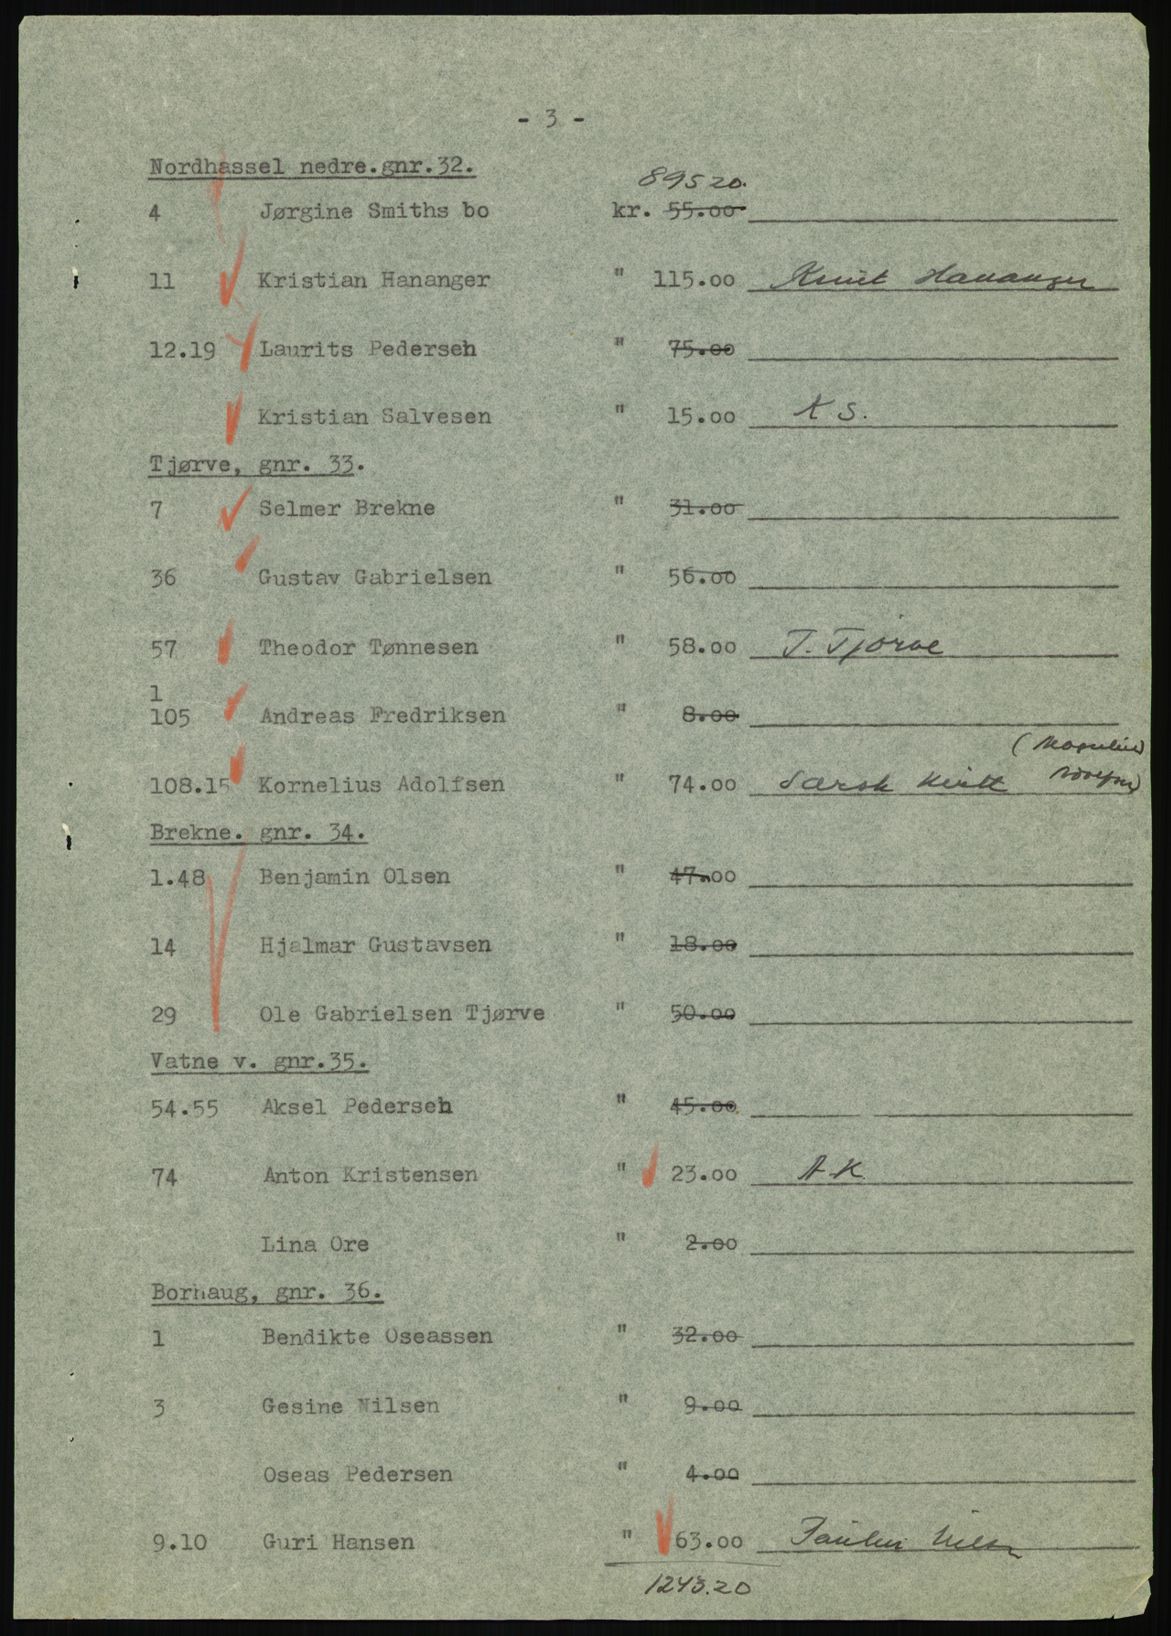 - 3 -
Nordhassel nedre.gnr.32.
895 20.
4 Jørgine Smiths bo kr. 55.00
11 Kristian Hananger " 115.00 Knut Hananger
12.19 Laurits Pedersen " 75.00
Kristian Salvesen " 15.00 K S.
Tjørve, gnr. 33.
7 Selmer Brekne " 31.00
36 Gustav Gabrielsen " 56.00
57 Theodor Tønnesen " 58.00 T. Tjørve
1
105 Andreas Fredriksen " 8.00
108.15 Kornelius Adolfsen " 74.00
Brekne. gnr. 34.
1.48 Benjamin Olsen " 47.00
14 Hjalmar Gustavsen " 18.00
29 Ole Gabrielsen Tjørve " 50.00
Vatne v. gnr.35.
54.55 Aksel Pedersen " 45.00
74 Anton Kristensen " 23.00 A.K
Lina Ore " 2.00
Borhaug, gnr. 36.
1 Bendikte Oseassen " 32.00
3 Gesine Nilsen " 9.00
Oseas Pedersen " 4.00
9.10 Guri Hansen " 63.00
1243.20